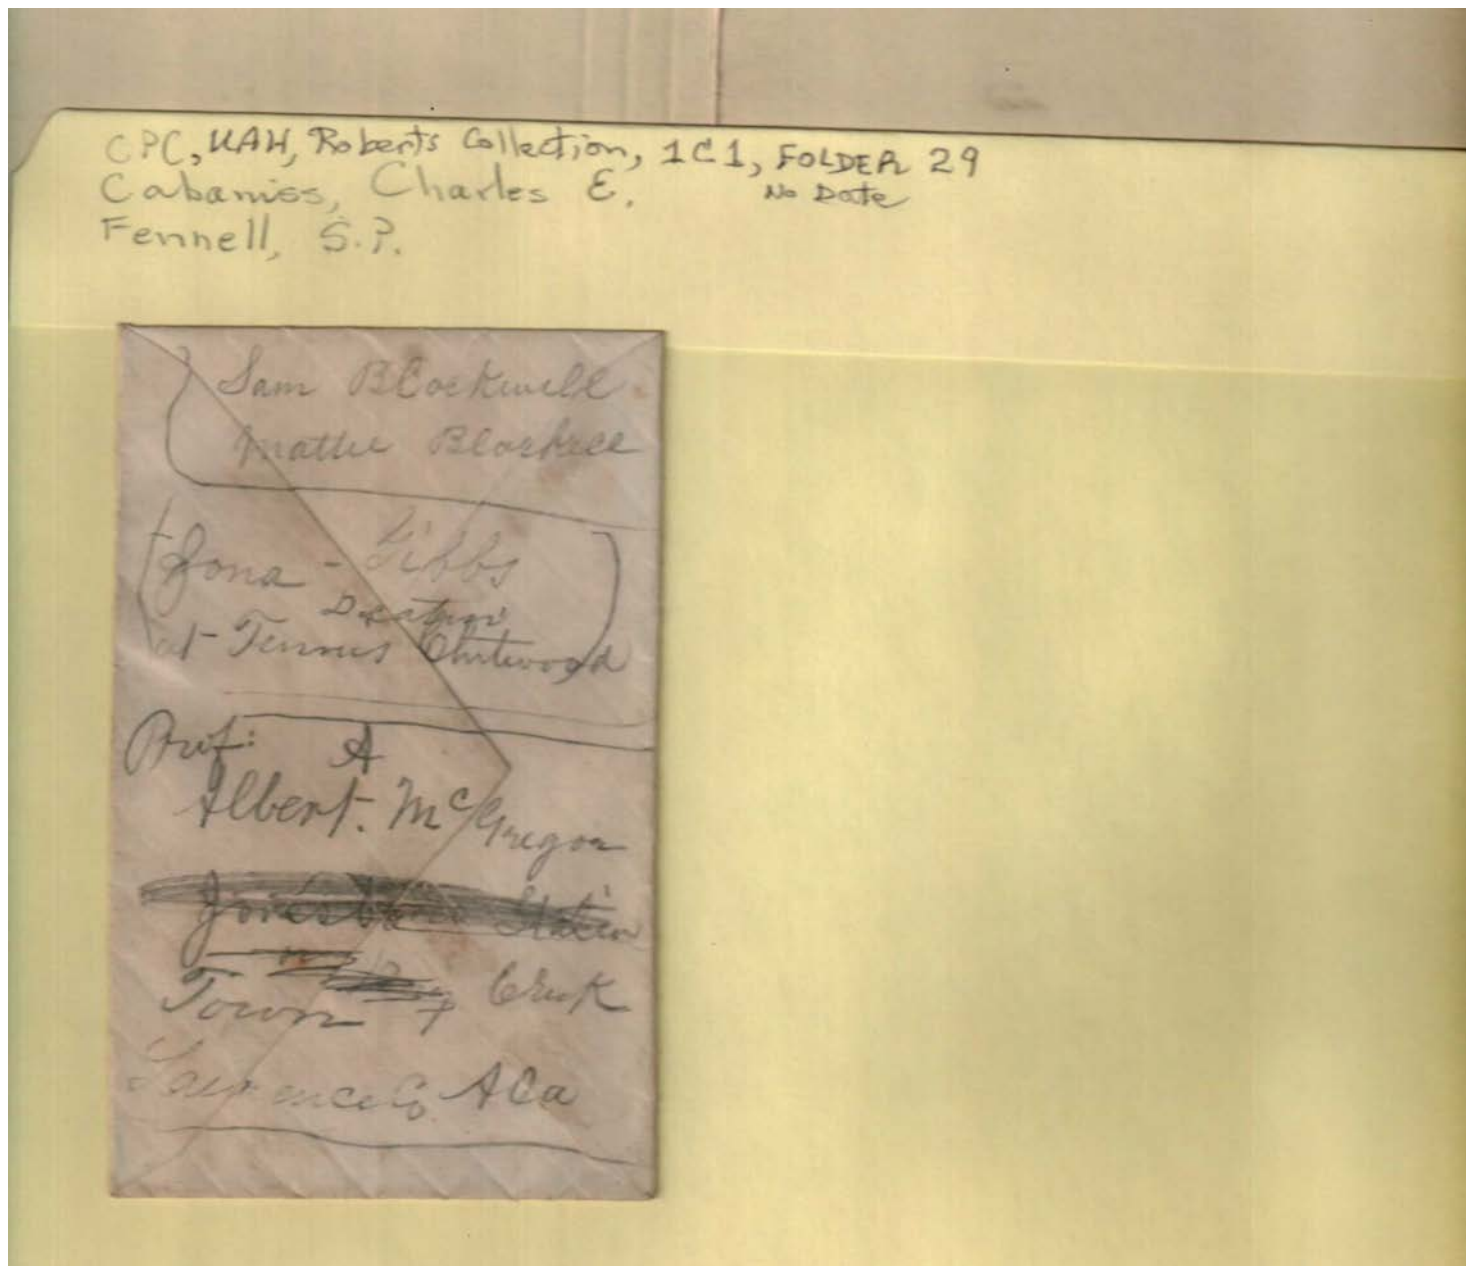 CPC, UAH, Roberts Collection, 1C1, FOLDER 29
Cabaniss, Charles E. No Date
Fennell, S.P.
Sam Blackwell
Mattie
Jona - Gibbs
Decatur
at Tennis Chitwood
Prof: A
Albert. McGregor
Station
Town Creek
Lawrence Co. Ala